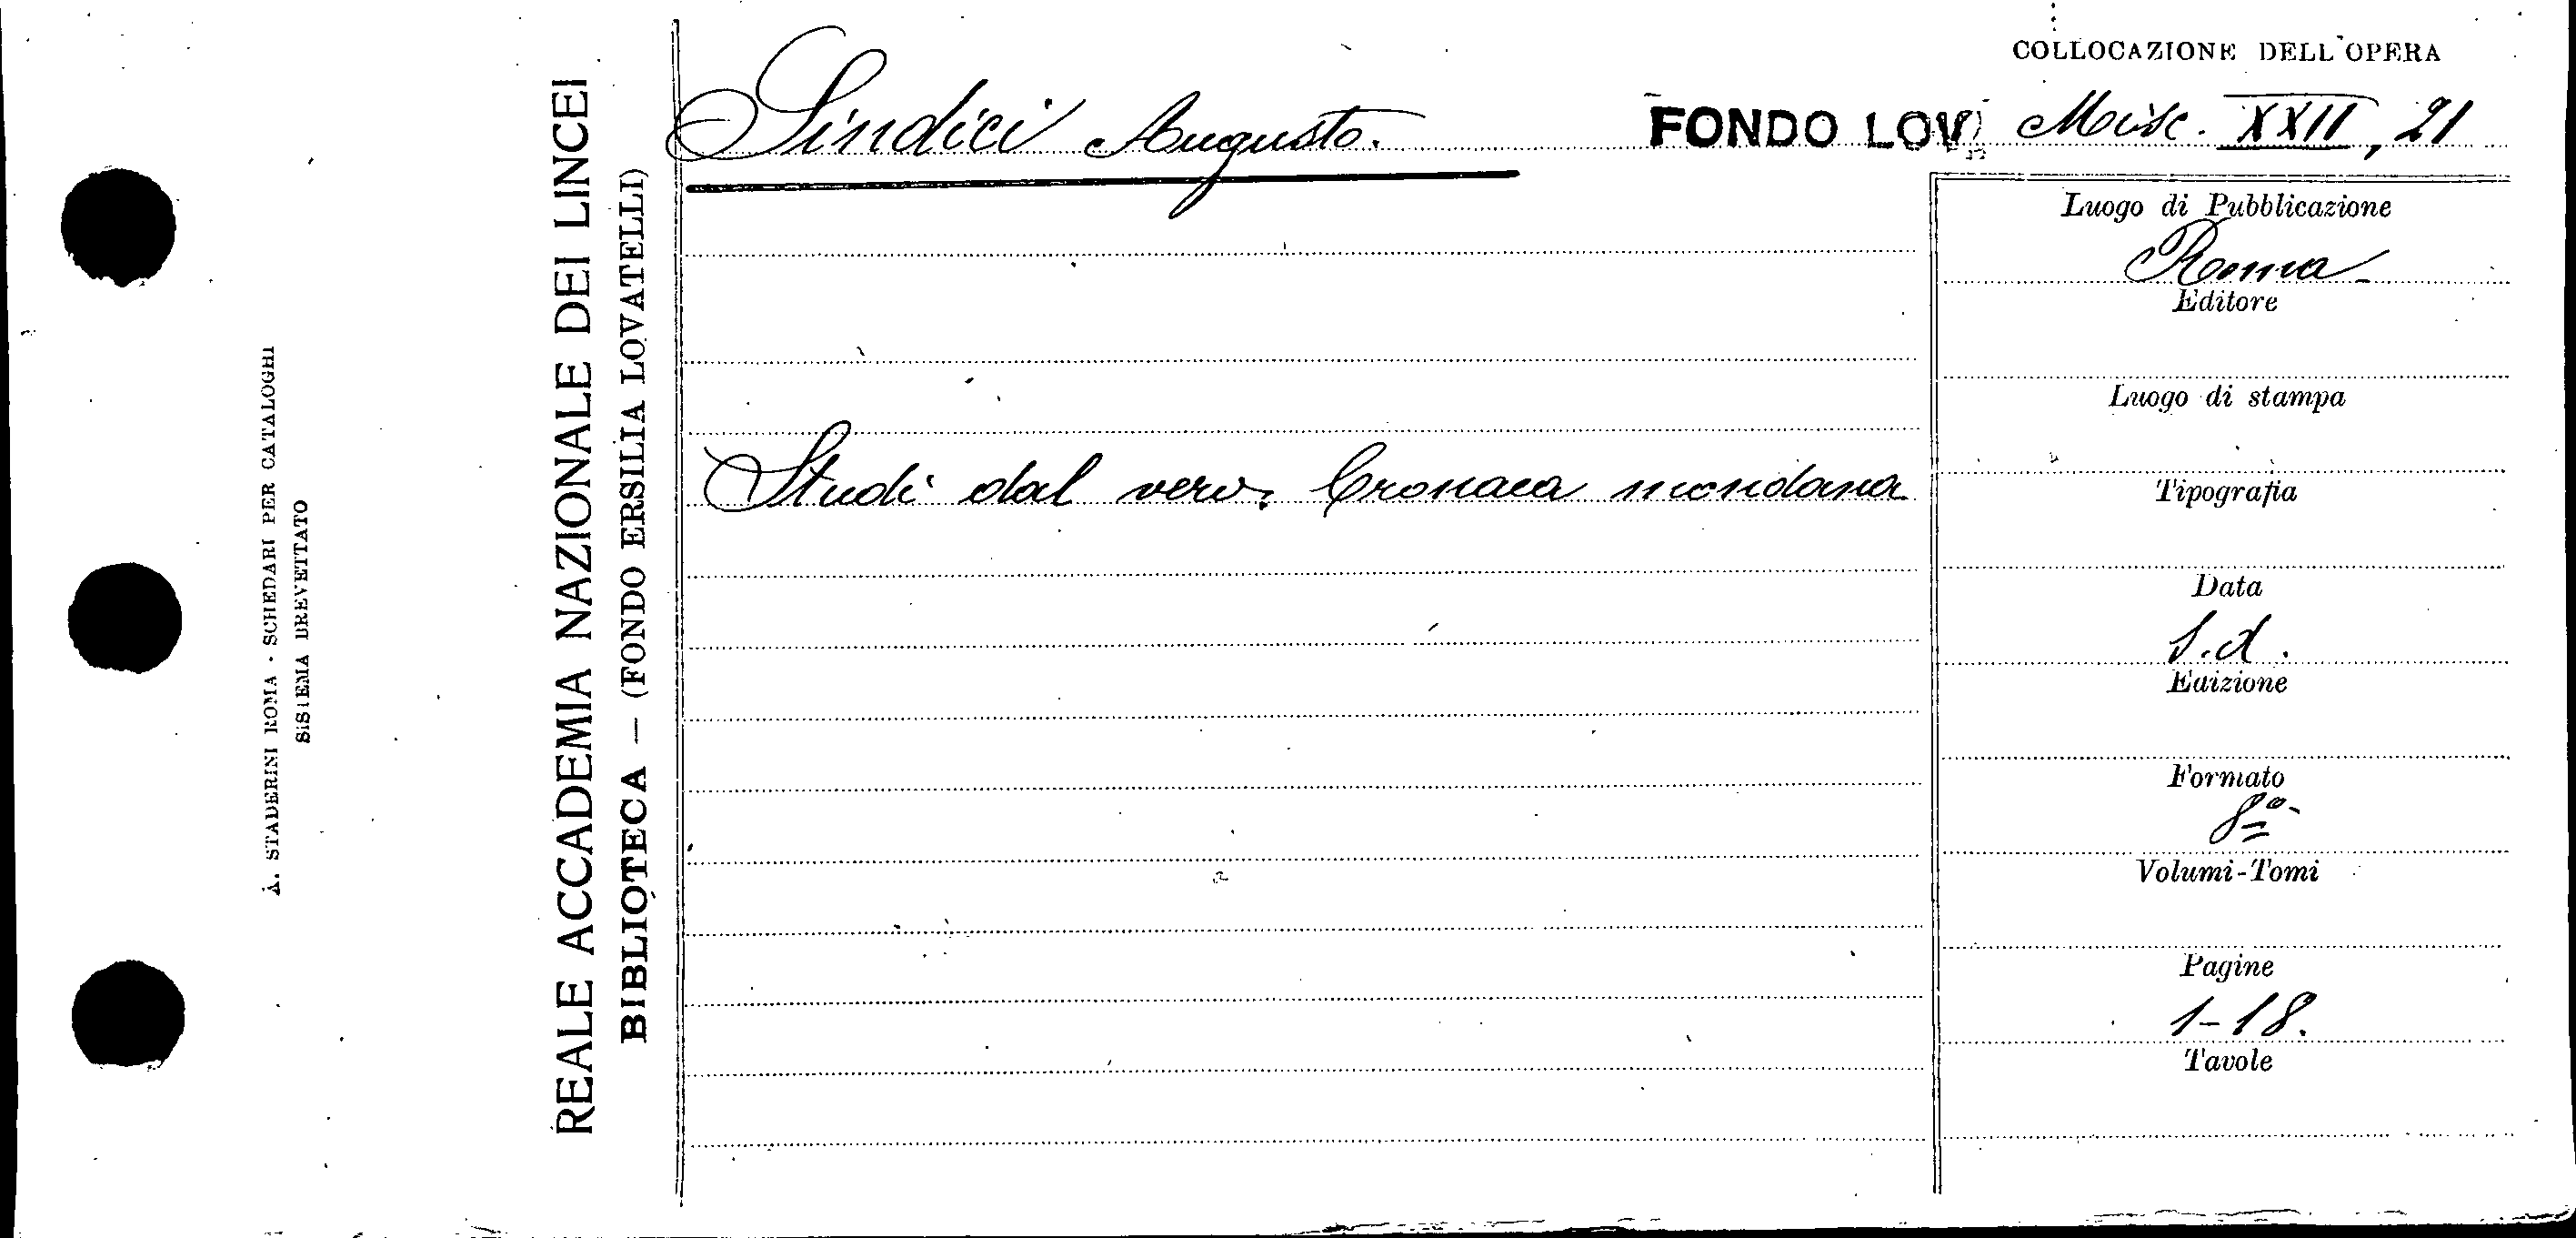 COLLOCAZIONE DELL'OPERA
Sindici Augusto.
FONDO LOV. Misc. XXII, 21
Studi dal vero. Cronaca mondana
Luogo di Pubblicazione
Roma
Editore
Luogo di stampa
Tipografia
Data
S.d.
Edizione
Formato
8º
Volumi-Tomi
Pagine
1-18.
Tavole
REALE ACCADEMIA NAZIONALE DEI LINCEI
BIBLIOTECA — (FONDO ERSILIA LOVATELLI)
A. STADERINI ROMA - SCHEDARI PER CATALOGHI
SISTEMA BREVETTATO